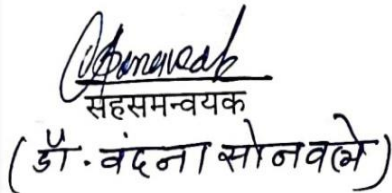 सहसमन्वयक
(डॉ. वंदना सोनवले)